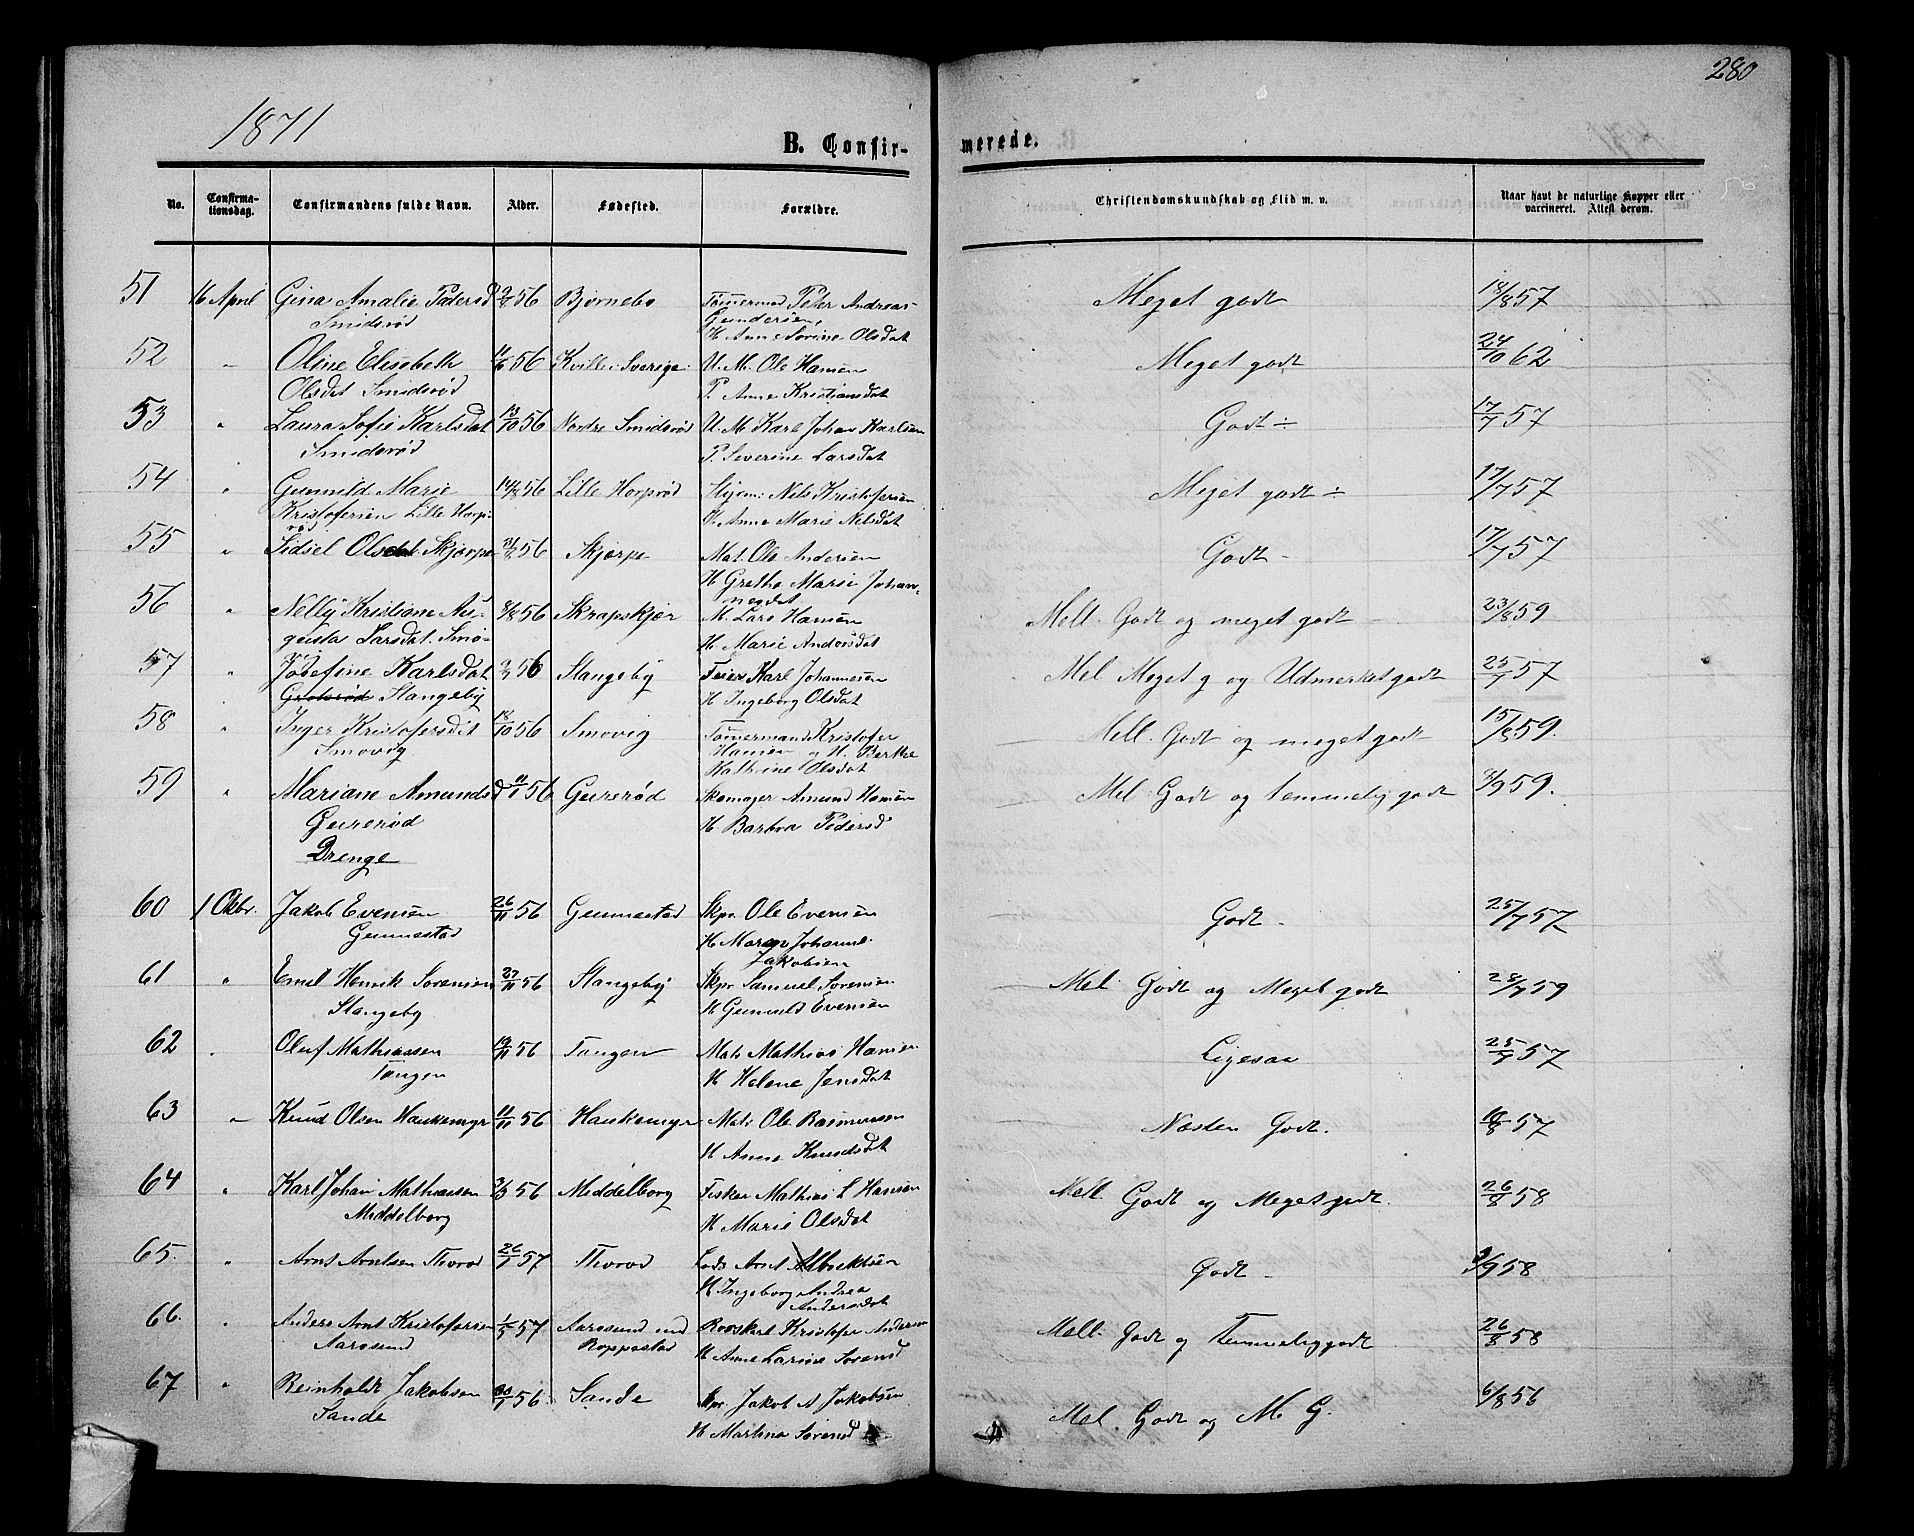 280
1871
B. Confir-
merede.
No.
Confirma-
tionsdag.
Confirmandens fulde Navn.
Alder.
Fødested.
Forældre.
Christendomskundskab og Flid m. v.
Naar havt de naturlige Kopper eller
vaccineret. Attest derom.
51 16 April Gina Amalie Pedersd 56 Bjørnebo Tømermd Peter Andreas Meget godt 18/8 57
Smidsrød Gundersen,
H Anne Sorine Olsdat
52 " Oline Elisebeth 56 Kville i Sverige U. M. Ole Hansen Meget godt 24/10 62
Olsdat Smidsrød P. Anne Kristiansdat
53 " Laura Sofie Karlsdat 13/10 56 Nordre Smidsrød U. M Karl Johan Karlsen Godt ÷ 17/7 57
Smidsrød P. Severine Larsdat
54 " Gunnild Marie 14/8 56 Lille Horperød Styrm: Nels Kristofersen Meget godt ÷ 17/7 57
Kristofersen Lille Horpe H. Anne Marie Nelsdat
rød
55 " Sidsel Olsdat Skjærpe 56 Skjærpe Mat. Ole Andersen Godt - 17/7 57
H Grethe Marie Johan-
nesdat
56 " Nelly Kristiane Au- 8/8 56 Skrapskjær M. Lars Hansen Mell. Godt og meget godt 23/8 59
gusta Larsdat. Smø- H Marie Andersdat
57 " Josefine Karlsdat 56 Stangeby Feier Karl Johannesen Mel Meget g og Udmerket godt 25/7 57
Grøterød Stangeby H Ingeborg Olsdat
58 " Inger Kristofersdat 18/10 56 Smovig Tømermand Kristofer Mell. Godt og meget godt 15/8 59.
Smovig Hansen og H. Berthe
Kathrine Olsdat
59 " Mariane Amundsd 11/11 56 Gurerød Skomager Amund Hansen Mel Godt og temmelig godt 59.
Gurerød H Barbra Pedersd
Drenge
60 1 Okbr. Jakob Evensen 26/11 56 Gunnestad Skpr. Ole Evensen Godt - 25/7 57
Gunnestad H Maren Johanne
Jakobsen
61 " Emil Henrik Sørensen 27/11 56 Stangeby Skpr Samuel Sørensen Mel. Godt og Meget godt 28/7 59
Stangeby H Gunnild Evensen
62 " Oluf Mathiassen 19/11 56 Tangen Mat. Mathias Hansen Ligesaa 25/7 57
Tangen H Helene Jensdat
63 " Knud Olsen Haukemyr 11/11 56 Haukemyr Mat. Ole Rasmussen Næsten Godt. 10/8 57
H Anne Knudsdat
64 " Karl Johan Mathiassen 56 Middelborg Fisker Mathias L Hansen Mell. Godt og Meget godt. 26/8 58
Middelborg H Marie Olsdat
65. " Arnt Arntsen Thorød 26/1 57 Thorød Lods Arnt Albrektsen Godt - 58
H Ingeborg Andrea
Andersdat
66. " Anders Arnt Kristofersen 57 Aarosund ved Rooskarl Kristofer Andersen Mell. Godt og Temmelig godt 26/8 58
Aarosund Roppestad H Anne Larine Sorensd
67 " Reinholdt Jakobsen 56. Sande Skpr. Jakob A Jakobsen Mel. Godt og M G. 6/8 56
Sande H Martine Sorensd